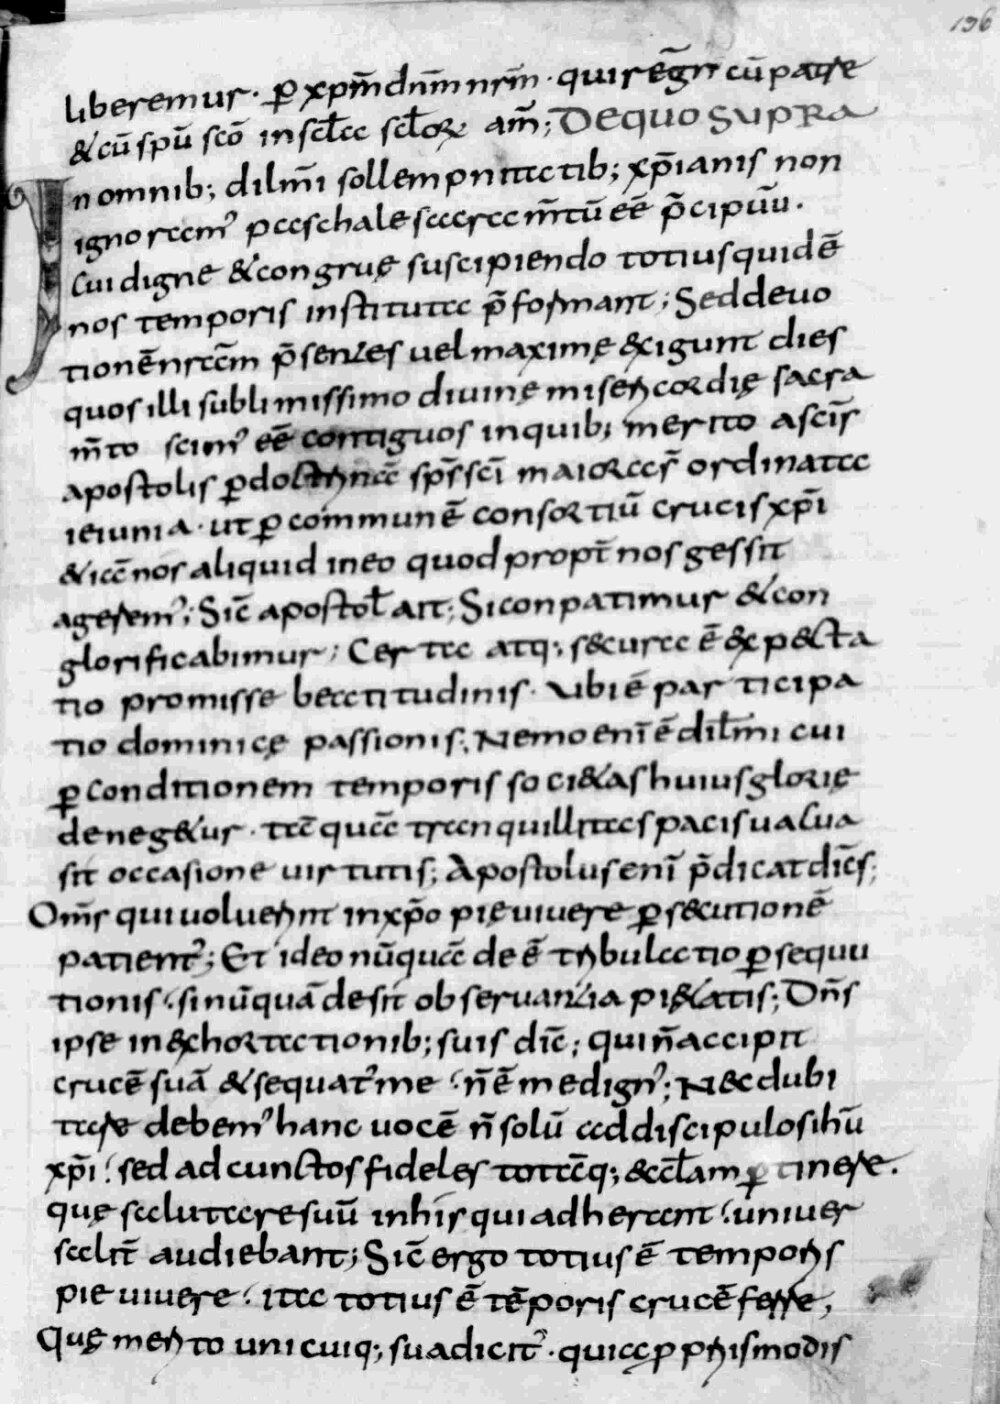 136
liberemur · ꝑ xpm̄ dnm̄ nrm̄ · qui regn̄ cū patre
& cū spū scō in scl̄a scl̄oꝝ am̄; DE QUO SUPRA
In omnib; dilm̄i sollempnitatib; xp̄ianis non
ignoram᾽ paschale sacram̄tū eē p̄cipuū ·
Cui digne & congruę suscipiendo totius quidē
nos temporis instituta p̄formant; Sed deuo
tionē nram̄ p̄sentes uel maximę exigunt dies
quos illi sublimissimo diuinę misericordię sacra
m̄to scim᾽ eē contiguos in quib; merito a scīs
apostolis ꝑ doctrinā sp̄s scī maiora s̄ ordinata
ieiunia · ut ꝑ communē consortiū crucis xp̄i
&iā nos aliquid in eo quod propt̄ nos gessit
agerem᾽; Sic̄ apostol̄ ait; Si conpatimur & con
glorificabimur; Certa atq; secura ē expecta
tio promisse beatitudinis · Ubi ē participa
tio dominicę passionis; Nemo enī ē dilm̄i cui
ꝑ conditionem temporis soci&as huius glorię
deneg&ur · tā quā tranquillitas pacis uacua
sit occasione uirtutis; Apostolus enī p̄dicat dicēs;
Om̄s qui uoluerint in xp̄o pię uiuere ꝑsecutionē
patient᾽; Et ideo nūquā deē tribulatio ꝑsequu
tionis · si nūquā desit obseruantia pi&atis; Dn̄s
ipse in exhortationib; suis dic̄; qui n̄ accipit
crucē suā & sequat᾽ me · n̄ ē me dign᾽; Nec dubi
tare debem᾽ hanc uocē n̄ solū ad discipulos ihū
xp̄i · sed ad cunctos fideles totāq; eccl̄am ꝑtinere ·
quę salutare suū in his qui adherant · uniuer
salit̄ audiebant; Sic̄ ergo totius ē temporis
pie uiuere · ita totius ē tēporis crucē ferre;
Quę merito unicuiq; sua dicit᾽ · quia ꝓpriis modis